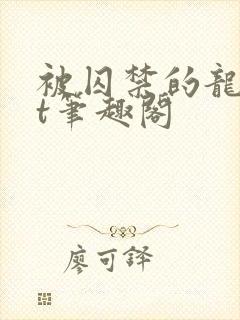 被囚禁的龍
t筆趣閣
廖可鐸